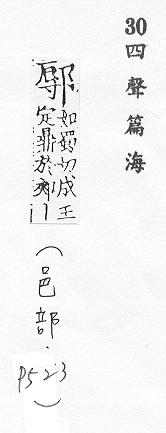 30
四聲篇海
鄏
如蜀切成王
定鼎於郟
(邑部.
P523)